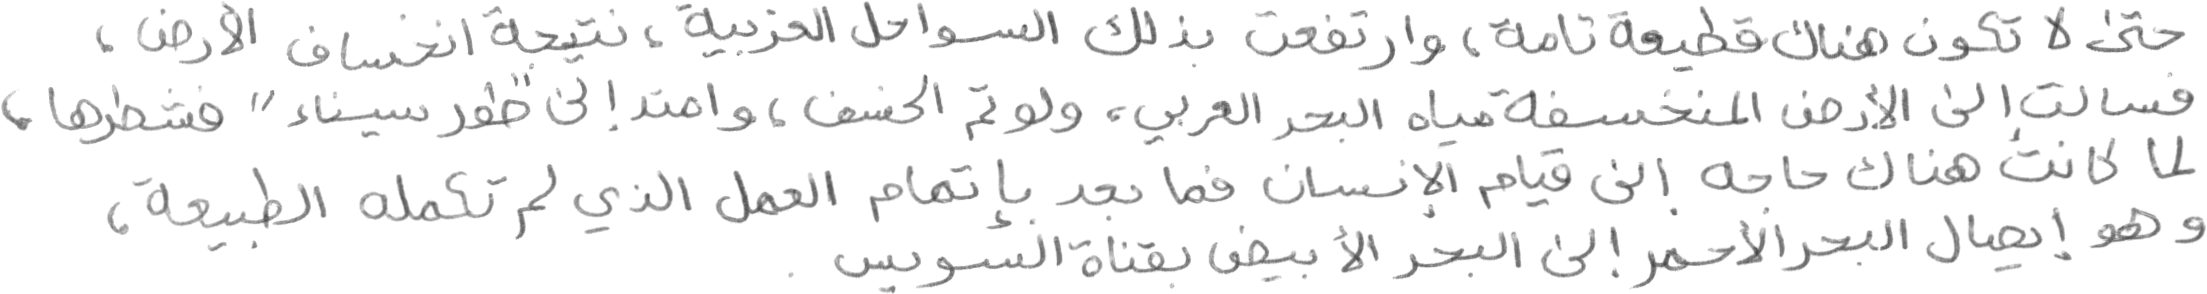 حتى لا تكون هناك قطيعة تامة، وارتفعت بذلك السواحل العزبية، نتيجة انخساف الأرض،
فسالت إلى الأرض المنخسفة مياه البحر العربي، ولو تم الخسف، وامتد إلى "طور سيناء" فشطرها،
لما كانت هناك حاجه إلى قيام الإنسان فما بعد بإتمام العمل الذي لم تكمله الطبيعة،
وهو إيصال البحر الأحمر إلى البحر الأبيض بقناة السويس.